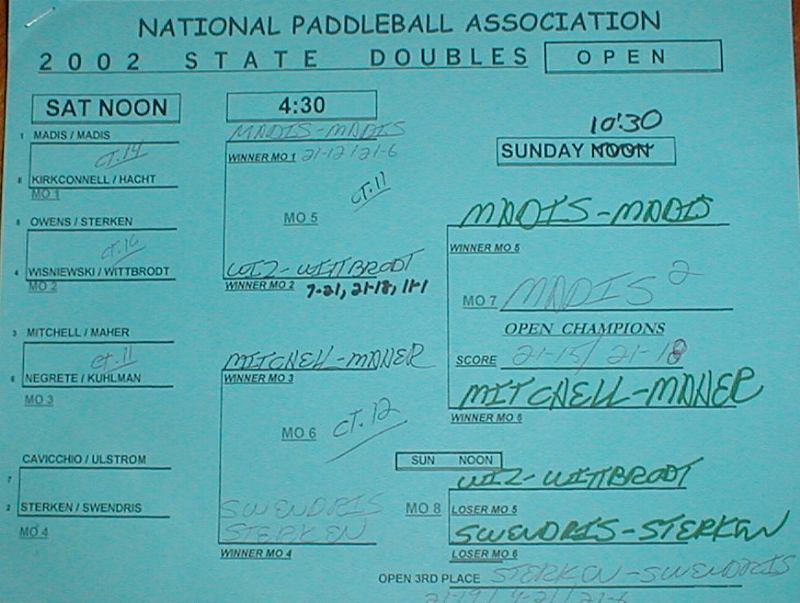 NATIONAL PADDLEBALL ASSOCIATION
2002 STATE DOUBLES OPEN
SAT NOON
1 MADIS / MADIS
CT. 14
8 KIRKCONNELL / HACHT
MO 1
5 OWENS / STERKEN
CT. 10
4 WISNIEWSKI / WITTBRODT
MO 2
3 MITCHELL / MAHER
CT. 11
6 NEGRETE / KUHLMAN
MO 3
CAVICCHIO / ULSTROM
7
2 STERKEN / SWENDRIS
MO 4
4:30
MADIS-MADIS
WINNER MO 1 21-12 / 21-6
CT. 11
MO 5
WIZ-WITTBRODT
WINNER MO 2 7-21, 21-18, 11-1
MITCHELL-MAHER
WINNER MO 3
MO 6 CT. 12
SWENDRIS
STERKEN
WINNER MO 4
10:30
SUNDAY NOON
MADIS-MADIS
WINNER MO 5
MO 7 MADIS 2
OPEN CHAMPIONS
SCORE 21-15 / 21-18
MITCHELL-MAHER
WINNER MO 6
SUN NOON
WIZ-WITTBRODT
MO 8 LOSER MO 5
SWENDRIS-STERKEN
LOSER MO 6
OPEN 3RD PLACE STERKEN-SWENDRIS
21-19 / 9-21 / 21-6